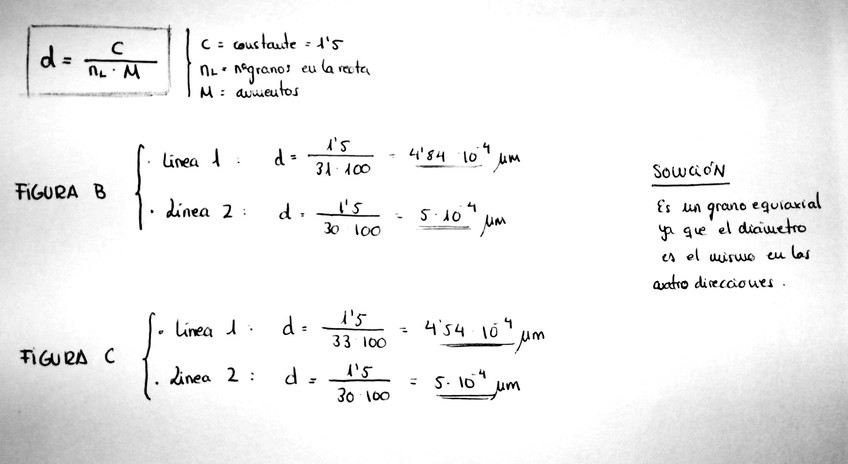 d = C / nL · M
C = constante = 1'5
nL = nº granos en la recta
M = aumentos
FIGURA B
· Linea 1 : d = 1'5 / 31 · 100 = 4'84 · 10^-4 μm
· Linea 2 : d = 1'5 / 30 100 = 5 · 10^-4 μm
SOLUCIÓN
Es un grano equiaxial
ya que el diámetro
es el mismo en las
cuatro direcciones.
FIGURA C
· Linea 1 . d = 1'5 / 33 100 = 4'54 · 10^-4 μm
· Linea 2 : d = 1'5 / 30 · 100 = 5 · 10^-4 μm